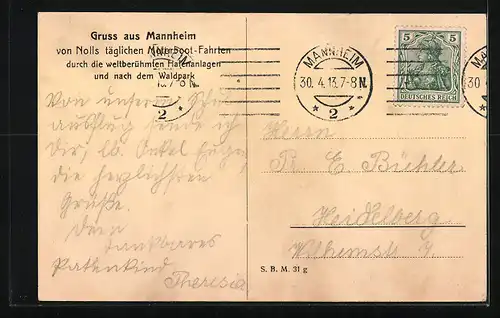 Gruss aus Mannheim
von Nolls täglichen Motorboot-Fahrten
durch die weltberühmten Hafenanlagen
und nach dem Waldpark
MANNHEIM
30.4.13.7-8N.
* 2 *
5 5
DEUTSCHES REICH
Von unserem
ausflug sende ich
Dir, lb. Onkel Eugen
die herzlichsten
Grüße.
Dein
dankbares
Patenkind
Theresia
Herrn
E Büchler
Heidelberg
S. B. M. 31 g